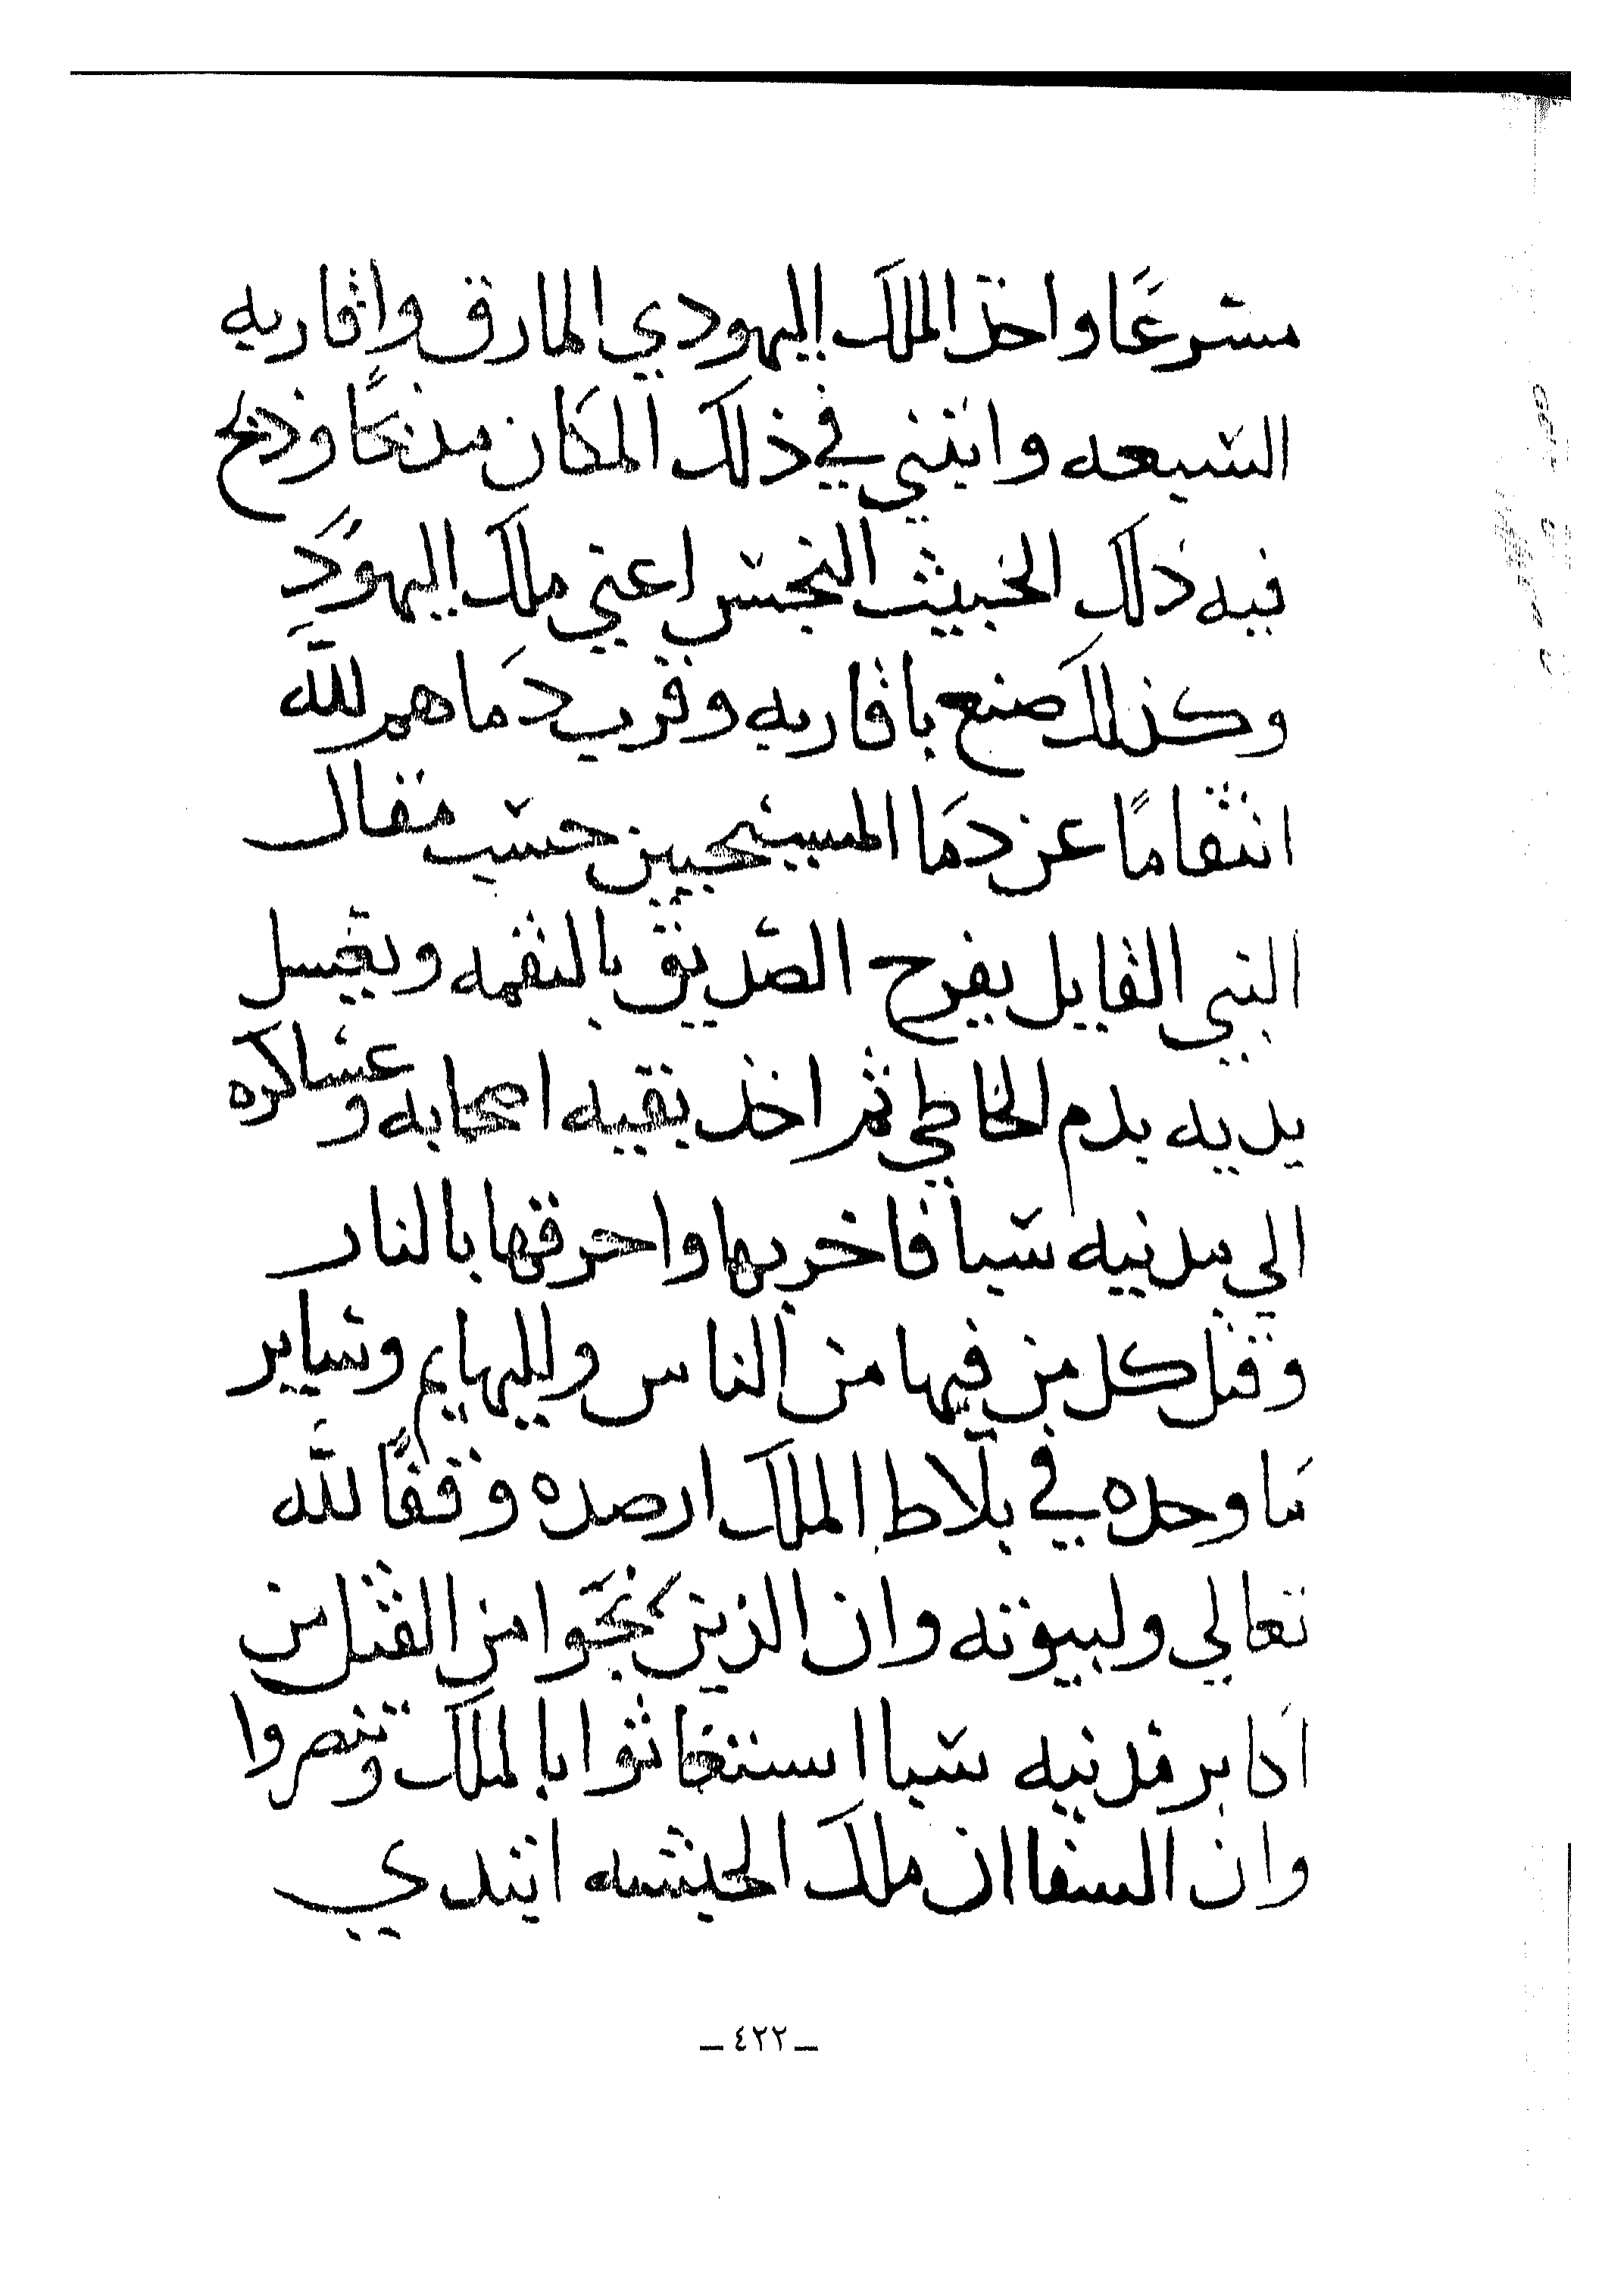 مسرعًا واخذ الملك اليهودي المارق واقاربه
السبعه وابتني في ذلك المكان مدبحًا وذبح
فيه ذلك الخبيث النجس اعني ملك اليهود
وكذلك صنع باقاربه وقرب دماهم لله
انتقامًا عن دما المسيحيين حسب مقال
النبي القايل يفرح الصديق بالنقمه ويغسل
يديه بدم الخاطي ثم اخذ بقيه اصحابه وعساكره
الي مدنيه سبا فاخربها واحرقها بالنار
وقتل كل من فيها من الناس والبهايم وساير
ما وجده في بلاط الملك ارصده وقفًا لله
تعالي ولبيوته وان الذين نجوا من القتل من
اكابر مدنيه سبا استغاثوا بالملك وتنصروا
وان السفاان ملك الحبشه ابتدي
ـ ٤٢٢ ـ